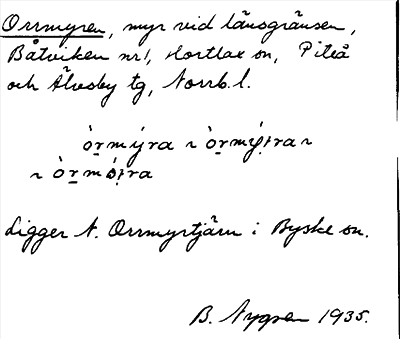 Orrmyren, myr vid länsgränsen,
Båtviken nr 1, Hortlax sn, Piteå
och Älvsby tg, Norrb. l.
òr̠mýra ~ òr̠mýṭra ~
~ òr̠mǿṭra
Ligger N. Orrmyrtjärn i Byske sn.
B. Nygren 1935.